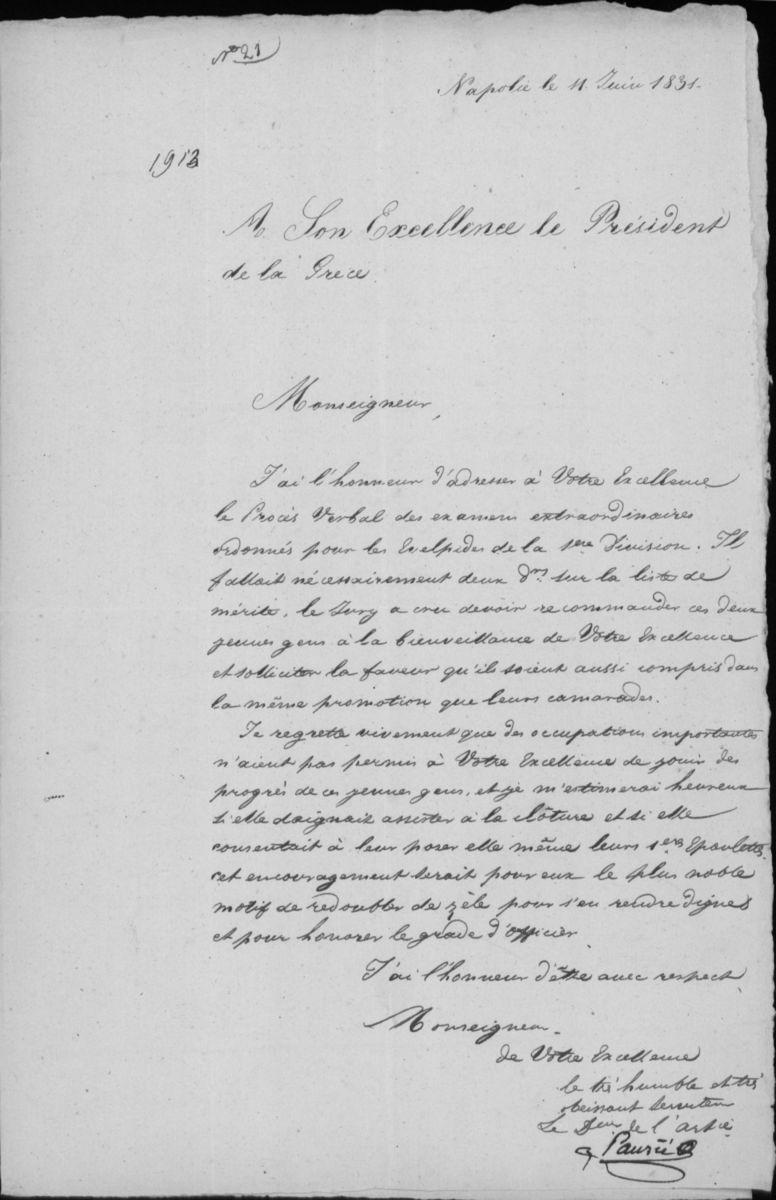 No 21
Napolie le 11 Juin 1831.
1913
A Son Excellence le Président
de la Grece
Monseigneur,
J'ai l'honneur d'adresser à Votre Excellence
le Procès Verbal des examens extraordinaires
ordonnés pour les Evelpides de la 1ere Division. Il
fallait nécessairement deux drs sur la liste de
mérite, le Jury a cru devoir recommander ces deux
jeunes gens à la bienveillance de Votre Excellence
et solliciter la faveur qu'ils soient aussi compris dans
la même promotion que leurs camarades.
Je regrette vivement que des occupations importantes
n'aient pas permis à Votre Excellence de jouir des
progrès de ces jeunes gens, et je m'estimerai heureux
si elle daignait assister à la clôture et si elle
consentait à leur poser elle même leurs 1eres Epaulettes.
cet encouragement serait pour eux le plus noble
motif de redoubler de zèle pour s'en rendre dignes
et pour honorer le grade d'officier
J'ai l'honneur d'être avec respect
Monseigneur.
de Votre Excellence
le très humble et très
obeissant serviteur
Le de l'artie
Pauzié